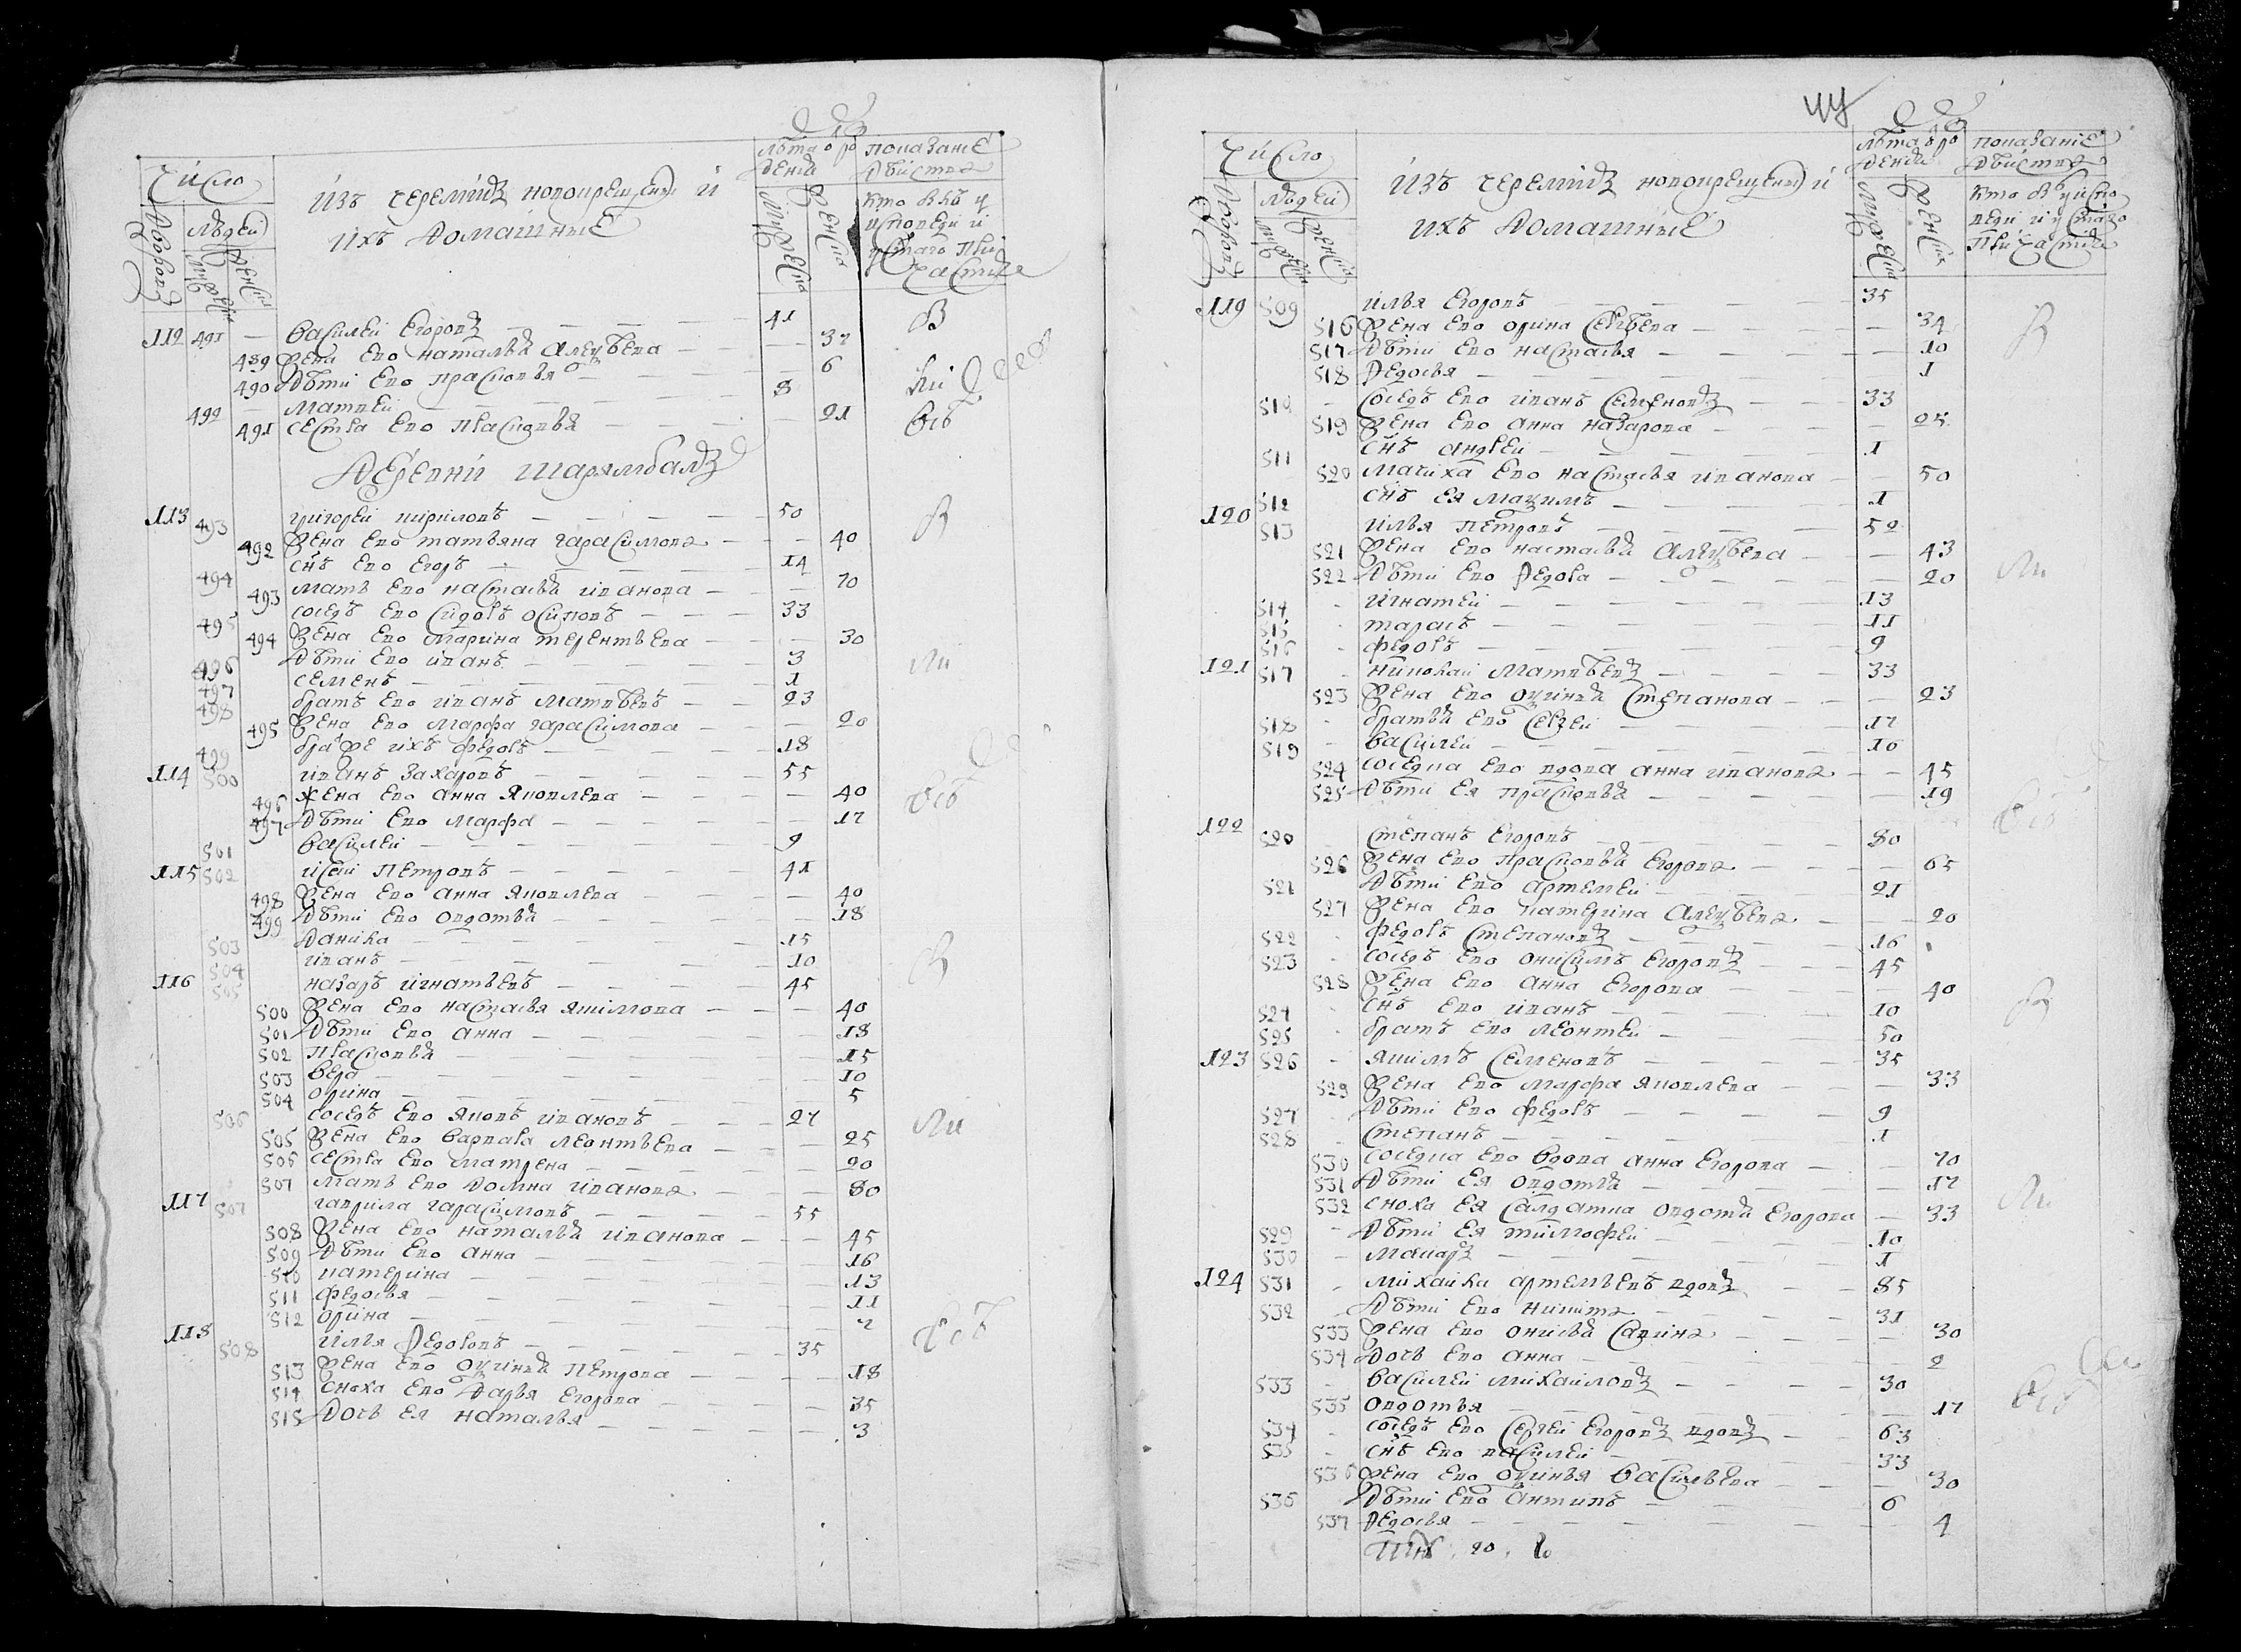 Число
Дворовъ
Людей
Мужеска
Женска
Изъ черемисъ новокрещеныи и
ихъ домашные
Лѣта о ро
ждения
Мужеска
Женска
показание
дѣйства
кто былъ у
исповеди и
святаго при
частия
112 491 — Василеи Егоровъ — 41
489 Жена ево наталья алеѯѣева — 37
490 дѣти ево прасковья — 6
492 — матвеи — 8
491 сестра ево прасковья — 21
деревни шарямбалъ
113 493 григореи кириловъ — 50
492 Жена ево татьяна гарасимова — 40
494 снъ ево егоръ — 14
493 мать ево настасья иванова — 70
495 соседъ ево сидоръ осиповъ — 33
494 Жена ево марина терентьева — 30
496 дѣти ево иванъ — 3
497 семенъ — 1
498 братъ ево иванъ матвѣевъ — 23
495 Жена ево марфа гарасимова — 20
499 братъ же ихъ федоръ — 18
114 500 иванъ захаровъ — 55
496 жена ево анна яковлева — 40
497 дѣти ево марфа — 17
501 василеи — 9
115 502 исеи петровъ — 41
498 Жена ево анна яковлева — 40
499 дѣти ево овдотья — 18
503 данила — 15
504 иванъ — 10
116 505 назаръ игнатьевъ — 45
500 Жена ево настасья якимова — 40
501 дѣти ево анна — 18
502 прасковья — 15
503 вера — 10
504 орина — 5
506 соседъ ево яковъ ивановъ — 27
505 Жена ево варвара леонтьева — 25
506 сестра ево матрена — 20
507 мать ево домна иванова — 80
117 507 гаврила гарасимовъ — 55
508 Жена ево наталья иванова — 45
509 дѣти ево анна — 16
510 катерина — 13
511 федосья — 11
512 орина — 7
118 508 илья Ѳедоровъ — 35
513 Жена ево оѯинья петрова — 18
514 сноха ево дарья егорова — 35
515 дочь ея наталья — 3
Число
Дворовъ
Людей
Мужеска
Женска
Изъ черемисъ новокрещеныи и
ихъ домашные
Лѣта о ро
ждения
Мужеска
Женска
показание
дѣйства
кто былъ у испо
веди и у святаго
причастия
119 509 илья Егоровъ — 35
516 Жена ево орина сергѣева — 34
517 дѣти ево настасья — 10
518 Ѳедосья — 1
510 — соседъ ево иванъ семеновъ — 33
519 Жена ево анна назарова — 25
511 снъ андреи — 1
520 мачиха ево настасья иванова — 50
512 снъ ея маѯимъ — 1
120 513 илья петровъ — 52
521 Жена ево настасья алеѯѣева — 43
522 дѣти ево Ѳедора — 20
514 — игнатеи — 13
515 — тарасъ — 11
516 — федоръ — 9
121 517 — николаи матвѣевъ — 33
523 Жена ево оѯинья степанова — 23
518 — братья ево сергеи — 17
519 — василеи — 16
524 соседка ево вдова анна иванова — 45
525 дѣти ея прасковья — 19
122 520 степанъ егоровъ — 80
526 Жена ево прасковья егорова — 65
521 дѣти ево артемеи — 21
527 Жена ево катерина алеѯѣева — 20
522 — федоръ степановъ — 16
523 — соседъ ево онисимъ егоровъ — 45
528 Жена ево анна егорова — 40
524 — снъ ево иванъ — 10
525 — братъ ево леонтеи — 50
123 526 — якимъ семеновъ — 35
529 Жена ево марфа яковлева — 33
527 — дѣти ево федоръ — 9
528 — степанъ — 1
530 соседка ево вдова анна егорова — 70
531 дѣти ея овдотья — 17
532 сноха ея салдатка овдотья егорова — 33
529 — дѣти ея тимофеи — 10
530 — макаръ — 1
124 531 — михаила артемьевъ вдовъ — 85
532 — дѣти ево никита — 31
533 Жена ево онисья савина — 30
534 дочь ево анна — 2
533 — василеи михаиловъ — 30
535 овдотья — 17
534 — соседъ ево сергеи егоровъ вдовъ — 63
535 — снъ ево василеи — 33
536 Жена ево оѯинья васильева — 30
536 дѣти ево антипъ — 6
537 Ѳедосья — 4